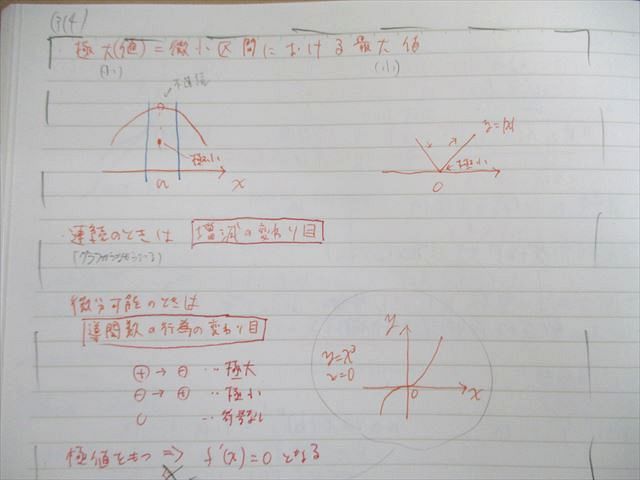 極大(値)=微小区間における最大値
(小) (小)
不連続
極小
a x
y=|x|
極小
0
・連続のときは 増減の変わり目
(グラフがつながっている)
微分可能のときは
導関数の行為の変わり目
⊕→⊖ ‥極大
⊖→⊕ ‥極小
0 ‥符号なし
y
y=x³
x=0
0 x
極値をもつ ⇒ f'(x)=0となる